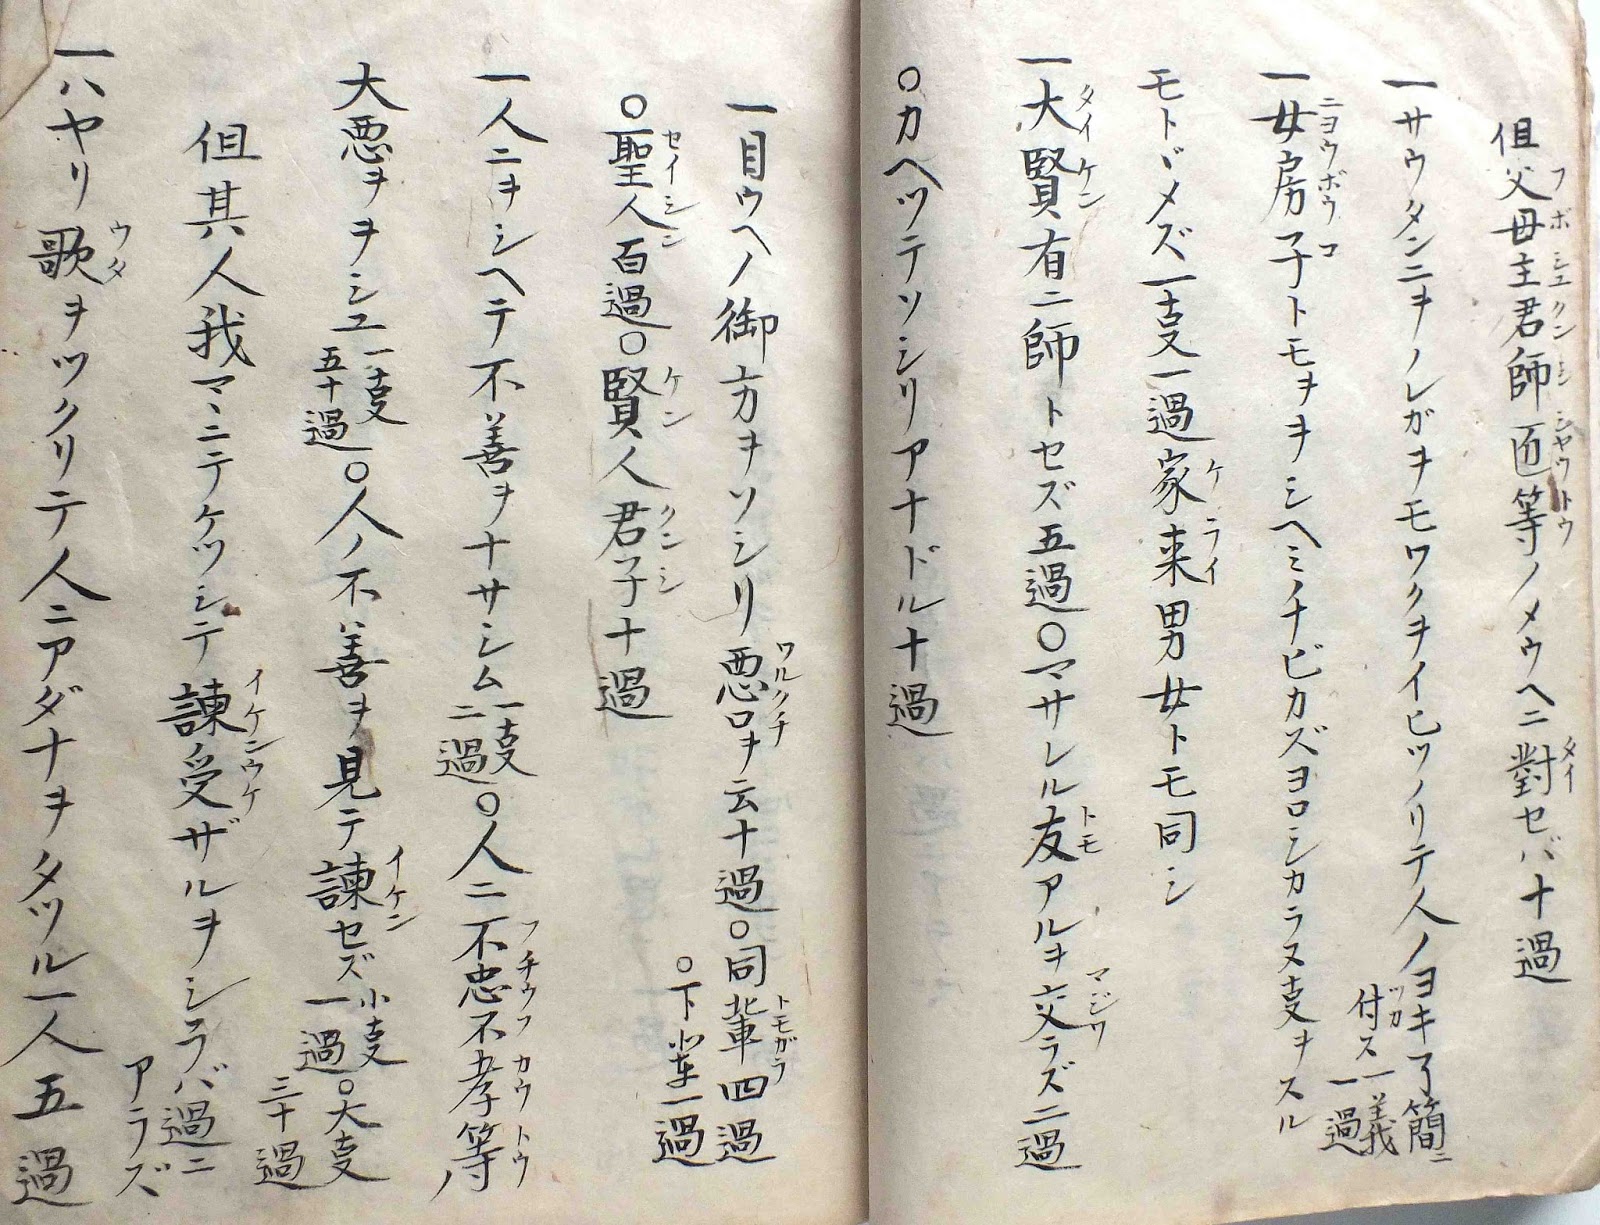 但父母主君師匠等ノメウヘニ對セバ十過
一サウタンニヲノレガヲモワクヲイヒツノリテ人ノヨキ了簡ニ付ス一義一過
一女房子トモヲヲシヘミチビカズヨロシカラヌ叓ヲスル
モトヾメズ一叓一過家来男女トモ同シ
一大賢有ニ師トセズ五過〇マサレル友アルヲ交ラズ二過
〇カヘツテソシリアナドル十過
一目ウヘノ御方ヲソシリ悪口ヲ云十過〇同輩四過〇下輩一過
〇聖人百過〇賢人君子十過
一人ニヲシヘテ不善ヲナサシム一叓二過〇人ニ不忠不孝等ノ
大悪ヲヲシユ一叓五十過〇人ノ不善ヲ見テ諫セズ小叓一過〇大叓三十過
但其人我マヽニテケツシテ諫受ザルヲシラバ過ニアラズ
一ハヤリ歌ヲツクリテ人ニアダナヲタツル一人五過